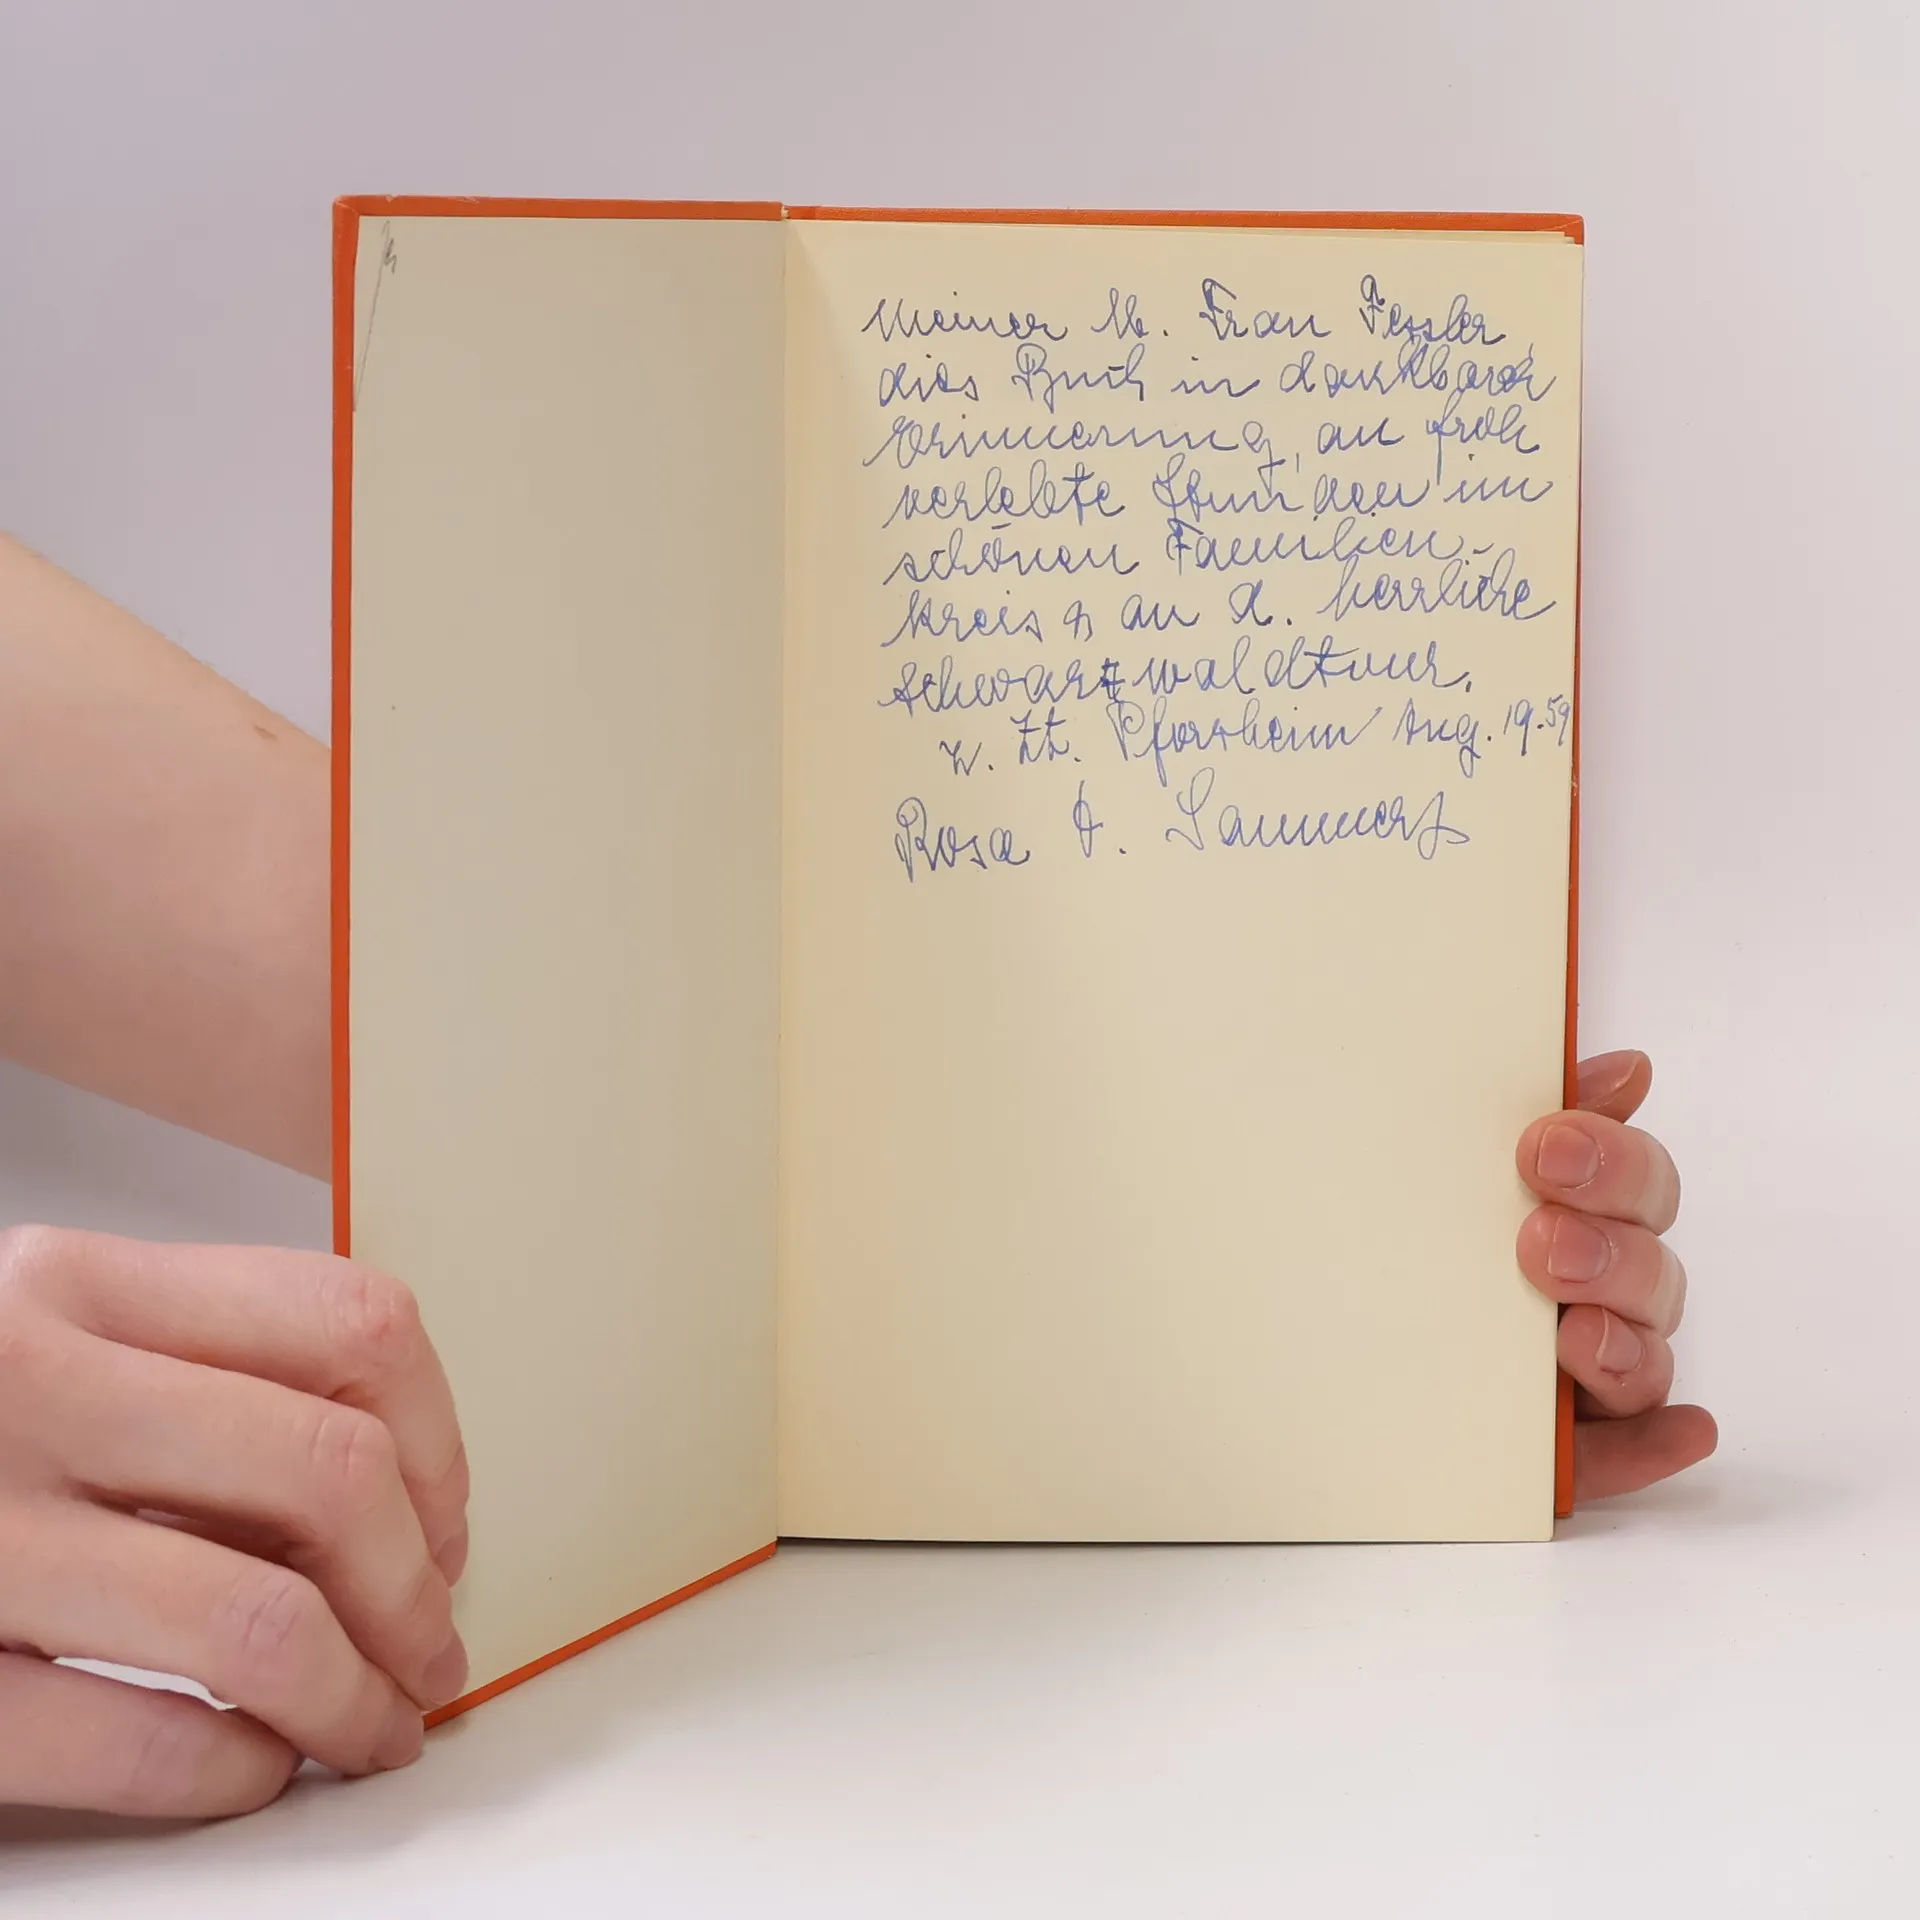 Meiner lb. Frau Fessler,
dies Buch in dankbarer
Erinnerung, an froh
verlebte Stunden im
schönen Familien-
kreis & an d. herrliche
Schwarzwaldtour.
z. Zt. Pforzheim Aug. 19.59
Rosa